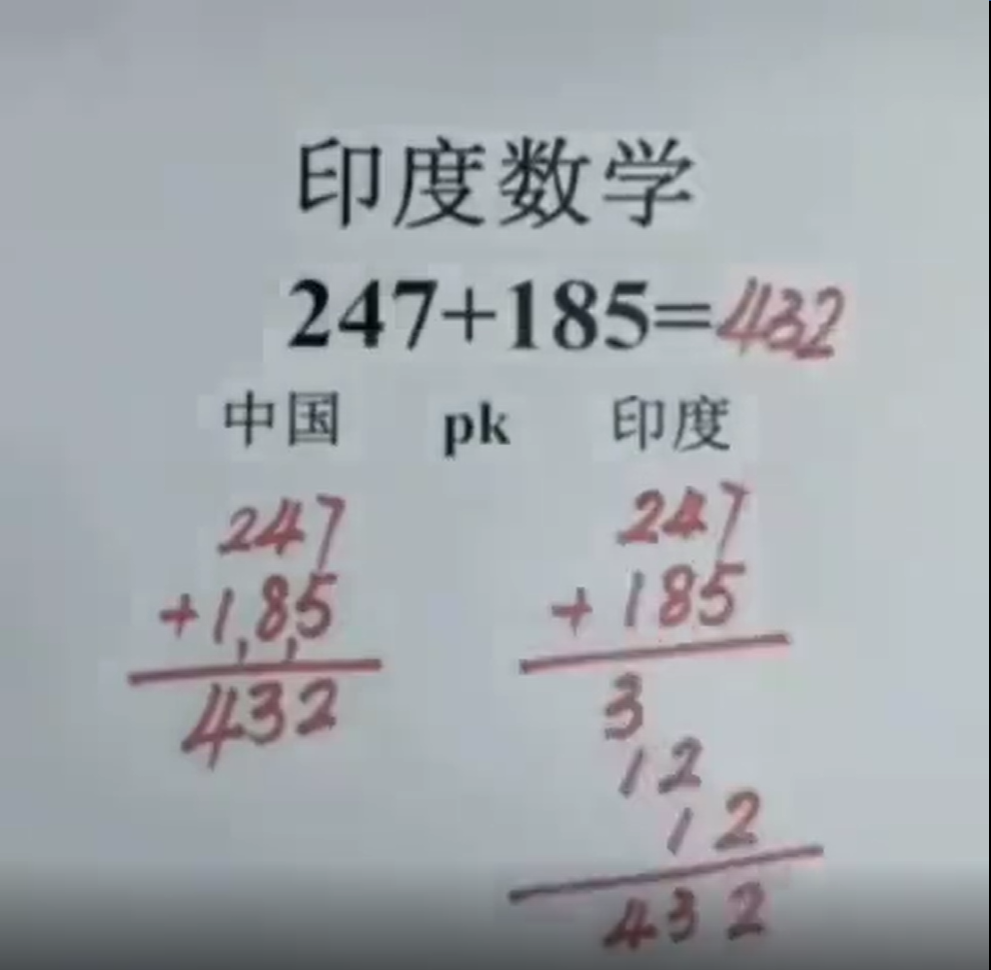 印度数学
247+185=432
中国 pk 印度
247
+185
432
247
+185
3
12
12
432